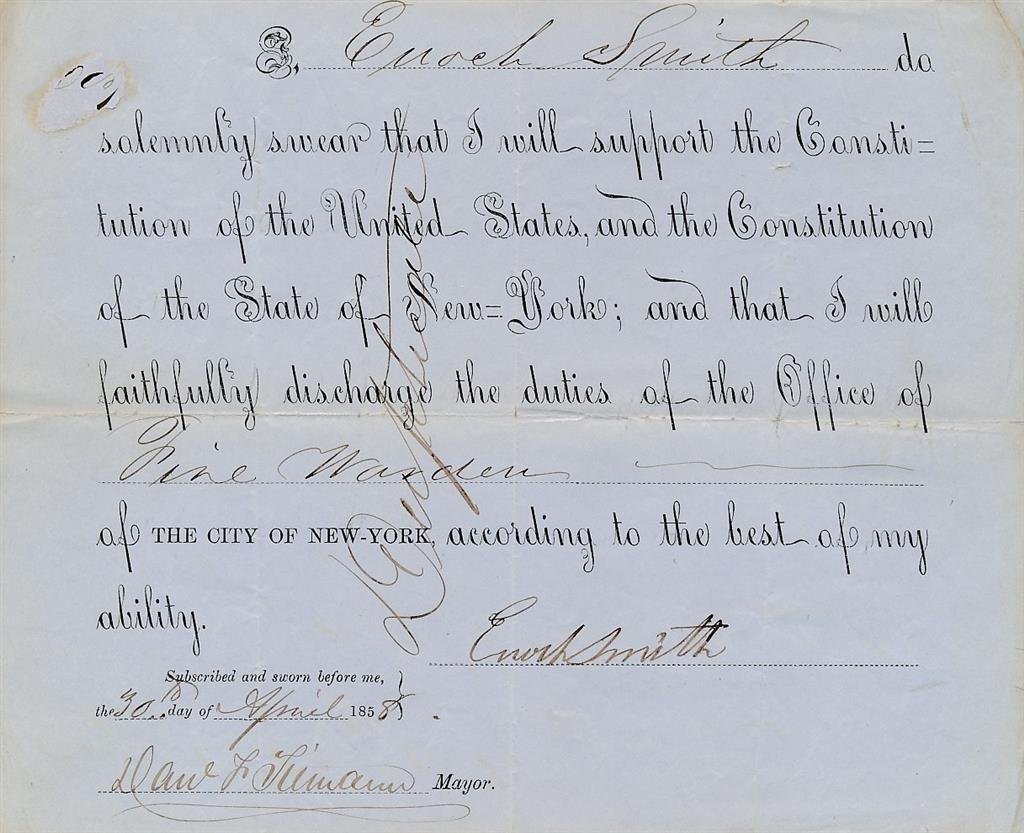 I, Enoch Smith do
solemnly swear that I will support the Consti=
tution of the United States, and the Constitution
of the State of New=York; and that I will
faithfully discharge the duties of the Office of
Fire Warden
of THE CITY OF NEW-YORK, according to the best of my
ability.
Enoch Smith
Subscribed and sworn before me,
the 30th day of April 1858.
Danl F Tiemann Mayor.
Duplicate